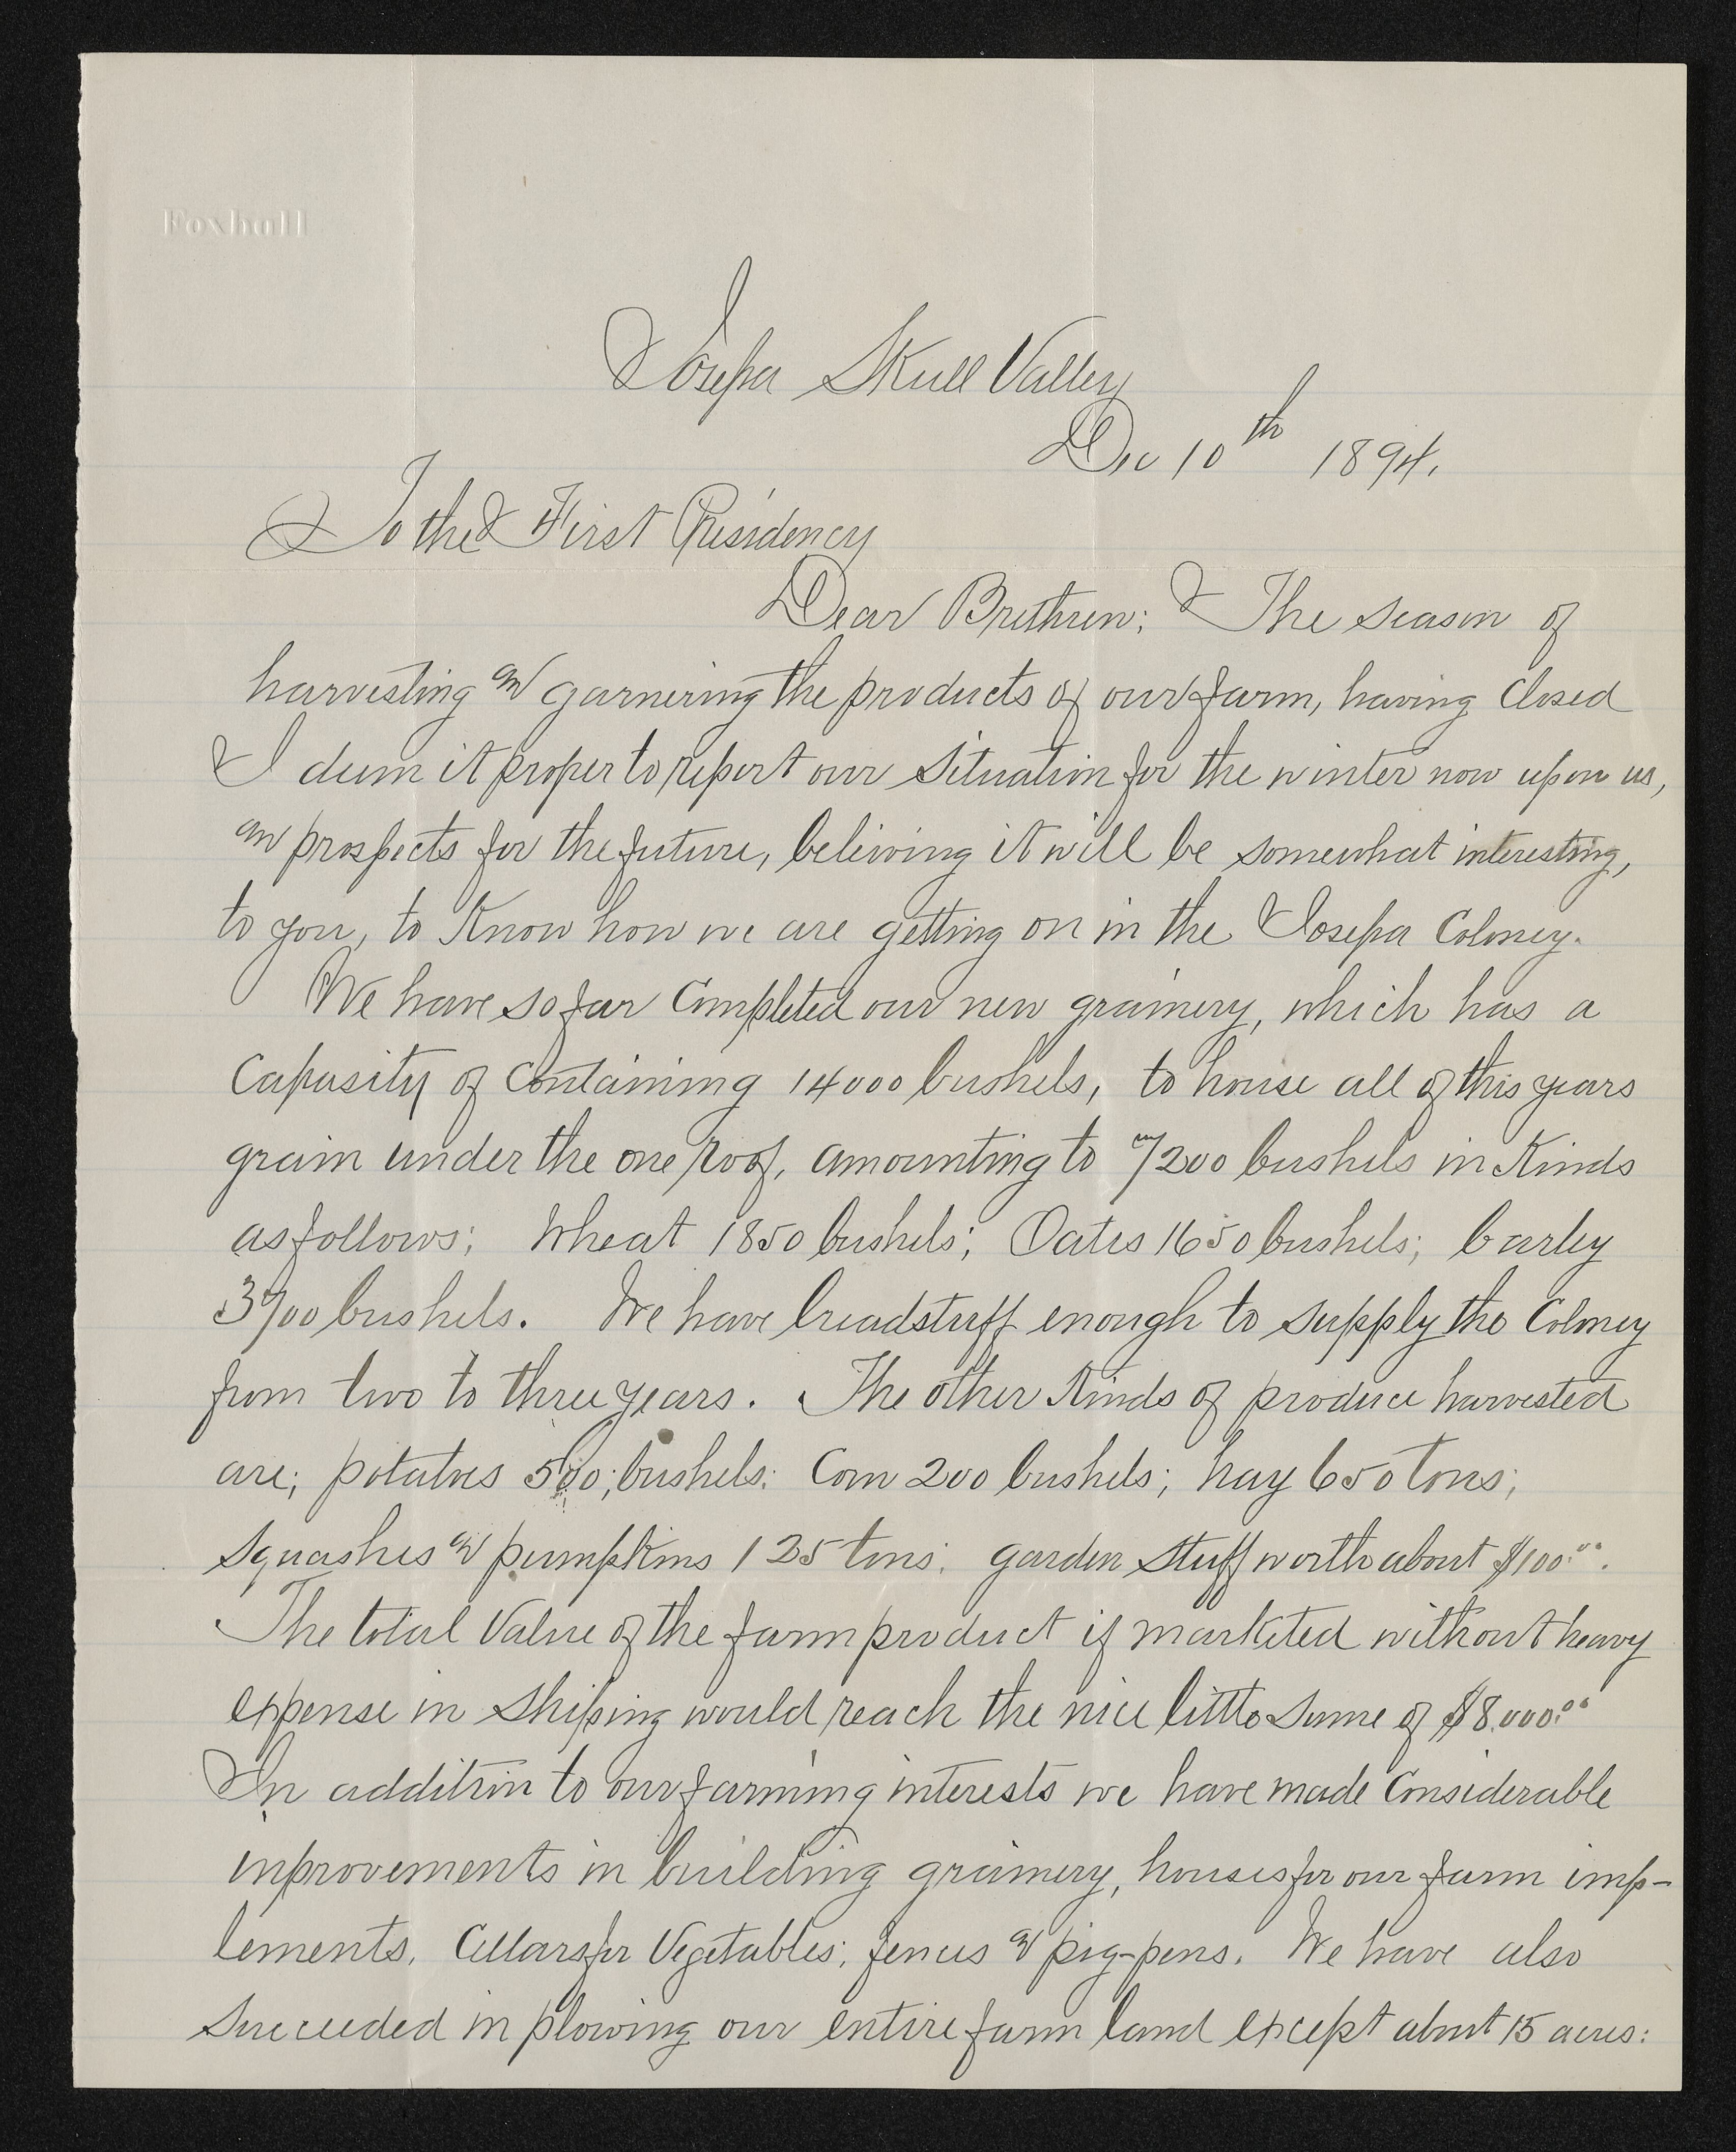 Foxhall
Iosepa Skull Valley
Dec 10th 1894.
To the First Presidency
Dear Brethren; The season of
harvesting and garnering the products of our farm, having closed
I deem it proper to report our situation for the winter now upon us,
and prospects for the future, believing it will be somewhat interesting,
to you, to know how we are getting on in the Iosepa Coloney.
We have so far Completed our new grainery, which has a
Capasity of Containing 14000 bushels, to house all of this years
grain under the one roof, amounting to 7200 bushels in kinds
as follows; Wheat 1850 bushels; Oates 1650 bushels; barley
3700 bushels. We have breadstuff enough to supply the Coloney
from two to three years. The other kinds of produce harvested
are; potatoes 500; bushels: Corn 200 bushels; hay 650 tons;
squashes and pumpkins 125 tons; garden stuff worth about $100.00.
The total Value of the farm product if marketed without heavy
expense in shiping would reach the nice little sume of $8,000.00
In addition to our farming interests we have made Considerable
inprovements in building grainery, houses for our farm imp-
lements, Cellars for Vegetables; fences and pig-pens. We have also
succeeded in plowing our entire farm land except about 15 acres: